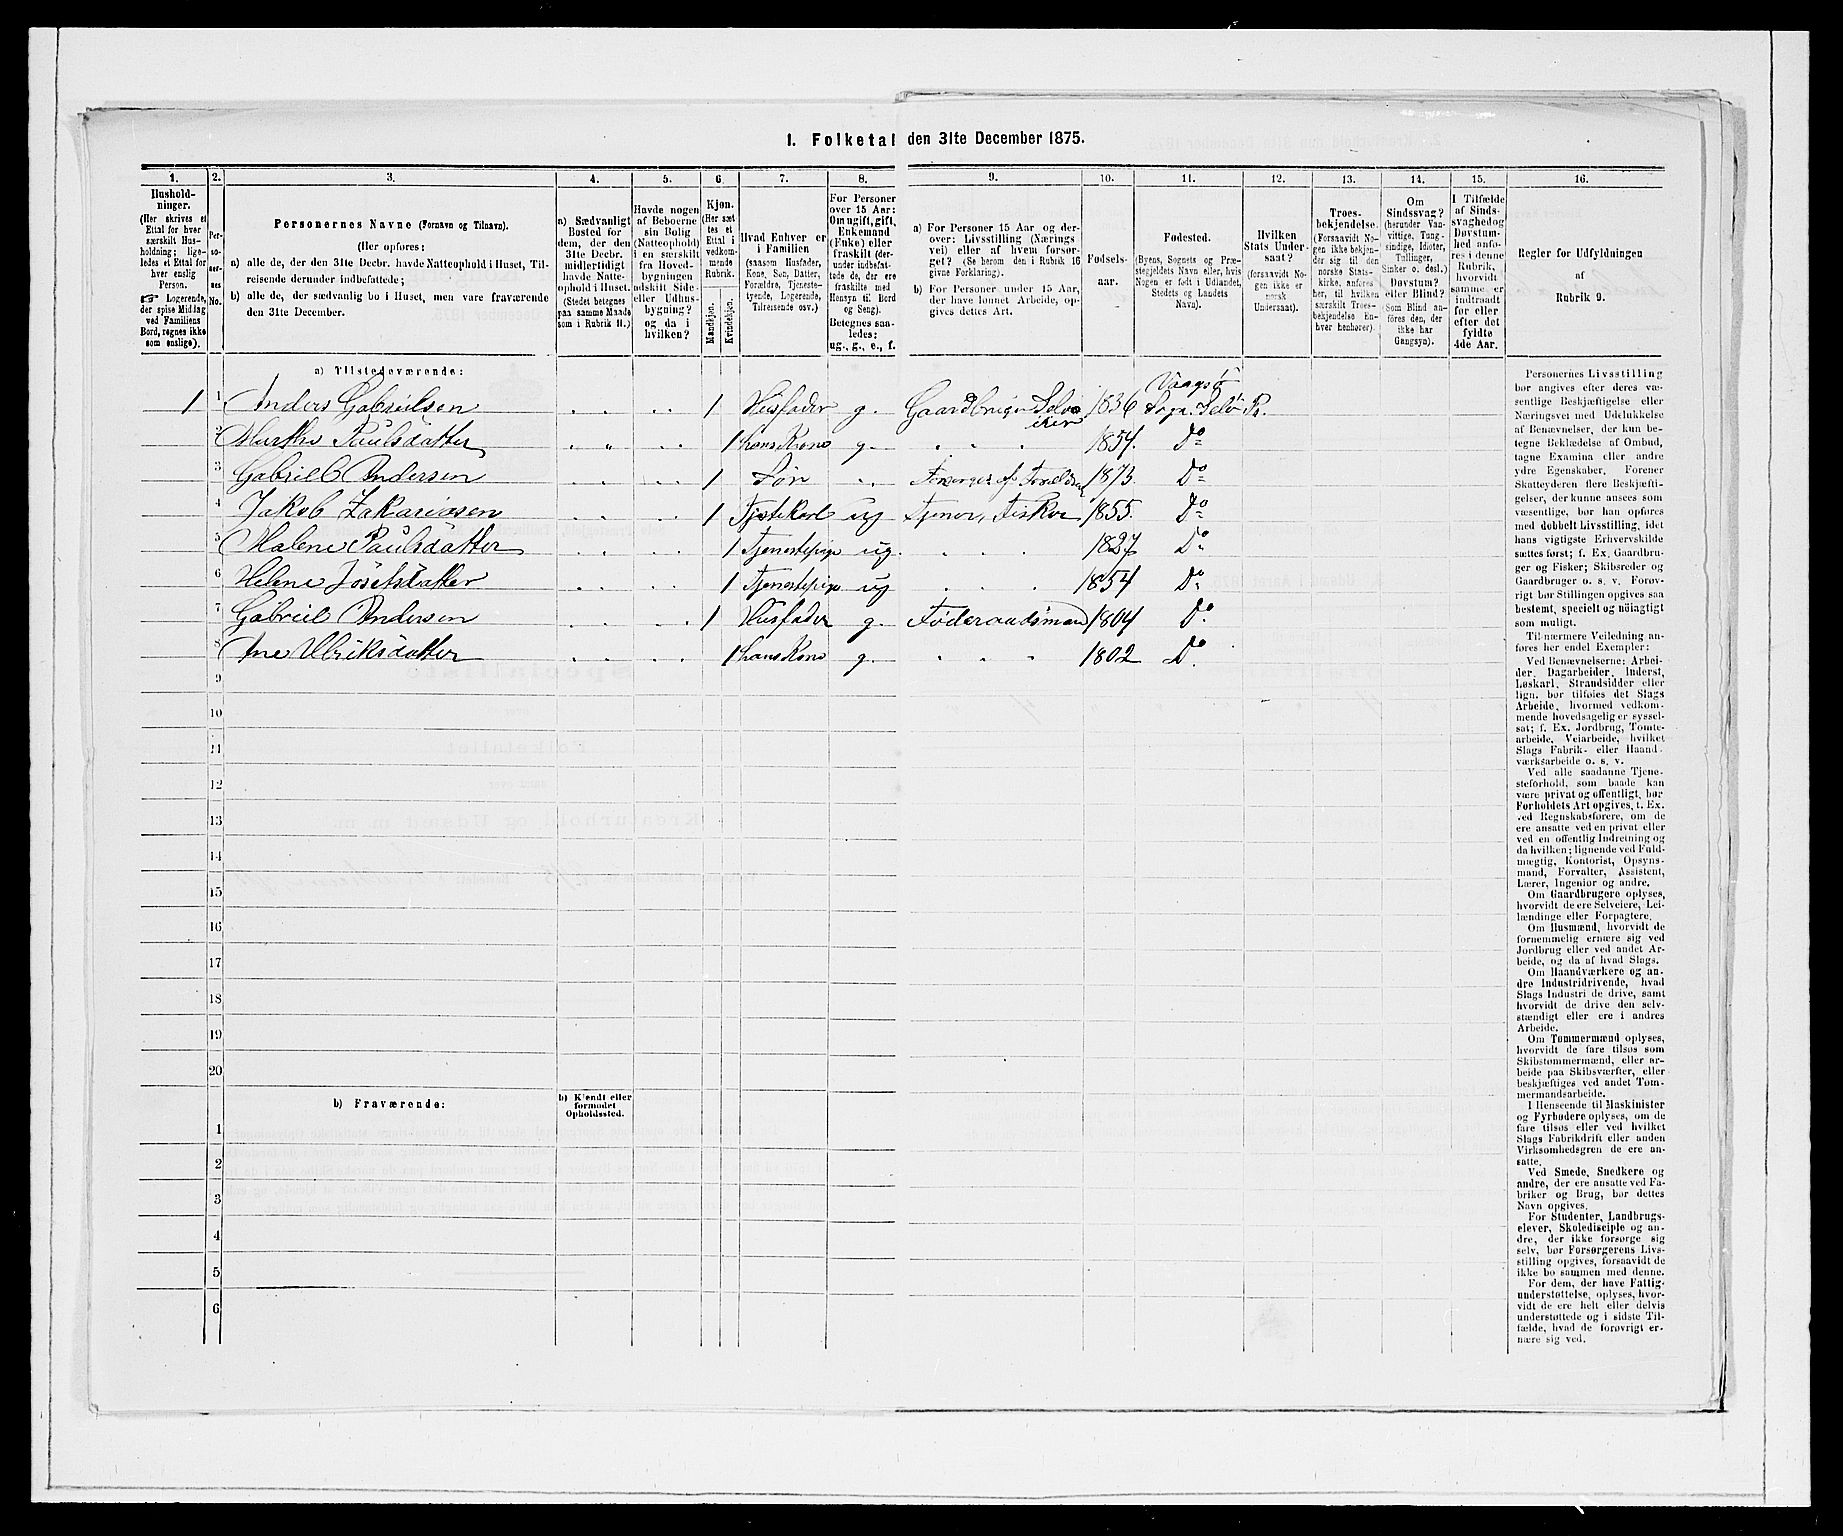 1. Folketal den 31te December 1875.
1.
2.
3.
4.
5.
6.
7.
8.
9.
10.
11.
12.
13.
14.
15.
16.
Hushold-
ninger.
(Her skrives et
Ettal for hver
særskilt Hus-
holdning; lige-
ledes et Ettal for
hver enslig
Person.
☞ Logerende,
der spise Middag
ved Familiens
Bord, regnes ikke
som enslige).
Per-
so-
ner-
nes
No.
Personernes Navne (Fornavn og Tilnavn).
(Her opføres:
a) alle de, der den 31te Decbr. havde Natteophold i Huset, Til-
reisende derunder indbefattede;
b) alle de, der sædvanlig bo i Huset, men vare fraværende
den 31te December.
a) Sædvanligt
Bosted for
dem, der den
31te Decbr.
midlertidigt
havde Natte-
ophold i Huset.
(Stedet betegnes
paa samme Maade
som i Rubrik 11.)
Havde nogen
af Beboerne
sin Bolig
(Natteophold)
i en særskilt
fra Hoved-
bygningen
adskilt Side-
eller Udhus-
bygning?
og da i
hvilken?
Kjøn.
(Her sæt-
tes et
Ettal i
vedkom-
mende
Rubrik.
Mandkjøn.
Kvindekjøn.
Hvad Enhver er
i Familien
(saasom Husfader,
Kone, Søn, Datter,
Forældre, Tjeneste-
tyende, Logerende,
Tilreisende osv.)
For Personer
over 15 Aar:
Om ugift, gift,
Enkemand
(Enke) eller
fraskilt (der-
under indbefat-
tede de, der ere
fraskilte med
Hensyn til Bord
og Seng).
Betegnes saa-
ledes:
ug., g., e., f.
a) For Personer 15 Aar og der-
over: Livsstilling (Nærings
vei) eller af hvem forsør-
get? (Se herom den i Rubrik 16
givne Forklaring).
b) For Personer under 15 Aar,
der have lønnet Arbeide, op-
gives dettes Art.
Fødsels-
aar.
Fødested.
(Byens, Sognets og Præ-
stegjeldets Navn eller, hvis
Nogen er født i Udlandet,
Stedets og Landets
Navn).
Hvilken
Stats Under-
saat?
(forsaavidt No-
gen ikke er
norsk
Undersaat).
Troes-
bekjendelse.
(Forsaavidt No-
gen ikke bekjen-
der sig til den
norske Stats-
kirke, anføres
her, til hvilken
særskilt Troes-
bekjendelse En-
hver henhører).
Om
Sindssvag?
(herunder Van-
vittige, Tung-
sindige, Idioter,
Tullinger,
Sinker o. desl.)
Døvstum?
eller Blind?
Som Blind an-
føres den, der
ikke har
Gangsyn).
I Tilfælde
af Sinds-
svaghed og
Døvstum-
hed anfø-
res i denne
Rubrik,
hvorvidt
samme er
indtraadt
før eller
efter det
fyldte
4de Aar.
Regler for Udfyldningen
af
Rubrik 9.
a) Tilstedeværende:
1 1 Anders Gabrielsen 1 Husfader g. Gaardbruger Selveier 1836 Vaagsø Sogn. Selø Pr.
2 Marthe Paulsdatter 1 hans Kone g. 1854. Do
3 Gabriel Andersen 1 Søn Forsørges af Forældre 1873. Do
4 Jakob Zakariasen 1 Tjstekarl ug Tjener, Fisker 1855. Do
5 Malene Paulsdatter 1 Tjenestepige ug. 1827 Do
6 Helene Josefsdatter 1 Tjenestepige ug 1854 Do
7 Gabriel Andersen 1 Husfader g. Føderaadsmand 1804 Do.
8 Ane Ulriksdatter 1 hans Kone g. 1802 Do.
9
10
11
12
13
14
15
16
17
18
19
20
b) Fraværende:
b) Kjendt eller
formodet
Opholdssted.
1
2
3
4
5
6
Personernes Livsstilling
bør angives efter deres væ-
sentlige Beskjæftigelse eller
Næringsvei med Udelukkelse
af Benævnelser, der kun be-
tegne Beklædelse af Ombud,
tagne Examina eller andre
ydre Egenskaber. Forener
Skatteyderen flere Beskjæfti-
gelser, der kunne ansees som
væsentlige, bør han opføres
med dobbelt Livsstilling, idet
hans vigtigste Erhvervskilde
sættes først; f. Ex. Gaardbru-
ger og Fisker; Skibsreder og
Gaardbruger o. s. v. Forøv-
rigt bør Stillingen opgives saa
bestemt, specielt og nøiagtigt
som muligt.
Til nærmere Veiledning an-
føres her endel Exempler:
Ved Benævnelserne: Arbei-
der, Dagarbeider, Inderst,
Løskarl, Strandsidder eller
lign. bør tilføies det Slags
Arbeide, hvormed vedkom-
mende hovedsagelig er syssel-
sat; f. Ex. Jordbrug, Tomte-
arbeide, Veiarbeide, hvilket
Slags Fabrik- eller Haand-
værksarbeide o. s. v.
Ved alle saadanne Tjene-
steforhold, som baade kan
være privat og offentligt, bør
Forholdets Art opgives, t. Ex.
ved Regnskabsførere, om de
ere ansatte ved en privat eller
ved en offentlig Indretning og
da hvilken; lignende ved Fuld-
mægtig, Kontorist, Opsyns-
mand, Forvalter, Assistent,
Lærer, Ingeniør og andre.
Om Gaardbrugere oplyses,
hvorvidt de ere Selveiere, Lei-
lændinge eller Forpagtere.
Om Husmænd, hvorvidt de
fornemmelig ernære sig ved
Jordbrug eller ved andet Ar-
beide, og da af hvad Slags.
Om Haandværkere og an-
dre Industridrivende, hvad
Slags Industri de drive, samt
hvorvidt de drive den selv-
stændigt eller ere i andres
Arbeide.
Om Tømmermænd oplyses,
hvorvidt de fare tilsøs som
Skibstømmermænd, eller ar-
beide paa Skibsværfter, eller
beskjæftiges ved andet Tøm-
mermandsarbeide.
I Henseende til Maskinister
og Fyrbødere oplyses, om de
fare tilsøs eller ved hvilket
Slags Fabrikdrift eller anden
Virksomhedsgren de ere an-
satte.
Ved Smede, Snedkere og
andre, der ere ansatte ved Fa-
briker og Brug, bør dettes
Navn opgives.
For Studenter, Landbrugs-
elever, Skoledisciple og an-
dre, der ikke forsørge sig
selv, bør Forsørgerens Livs-
stilling opgives, forsaavidt de
ikke bo sammen med denne.
For dem, der have Fattig-
understøttelse, oplyses, hvor-
vidt de ere helt eller delvis
understøttede og i sidste Til-
fælde, hvad de forøvrigt er-
nære sig ved.